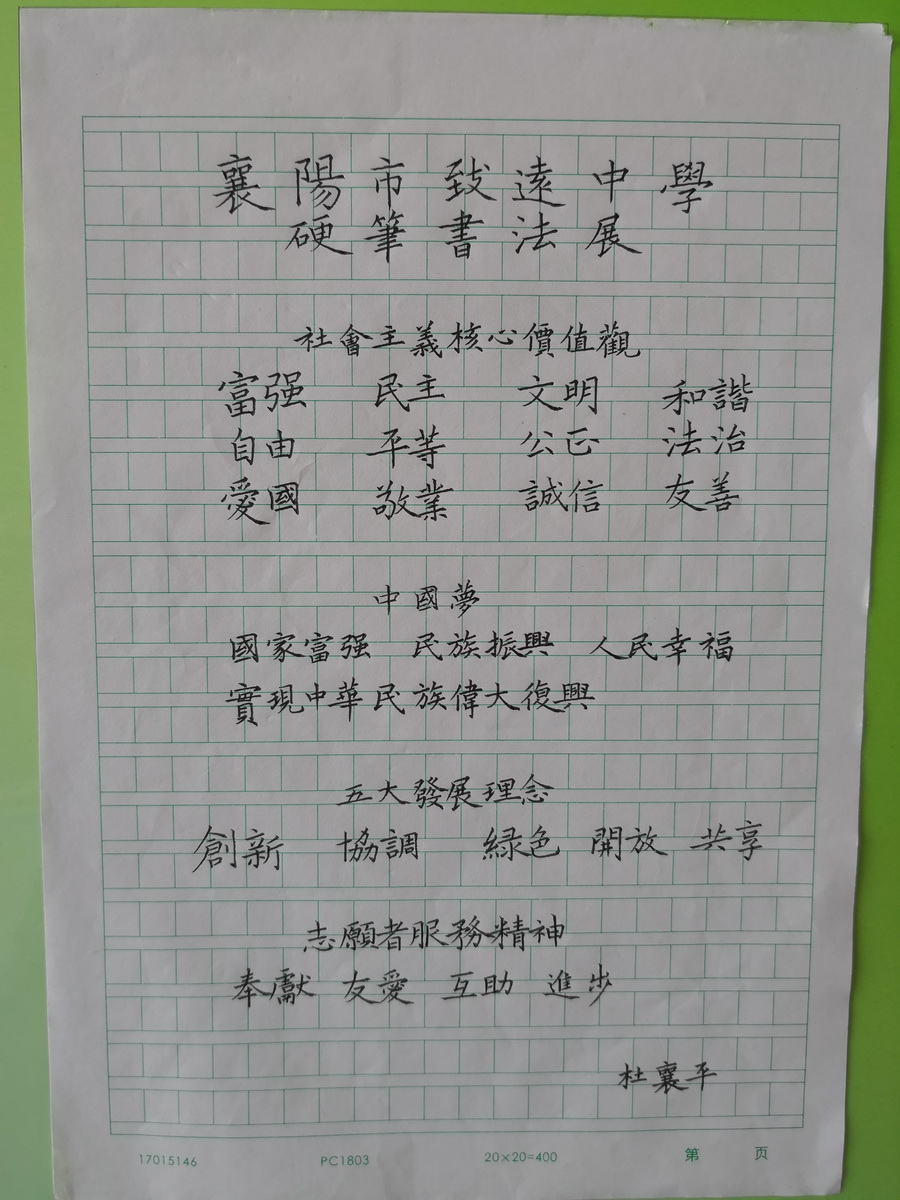 襄陽市致遠中學
硬筆書法展
社會主義核心價值觀
富强 民主 文明 和諧
自由 平等 公正 法治
愛國 敬業 誠信 友善
中國夢
國家富强 民族振興 人民幸福
實現中華民族偉大復興
五大發展理念
創新 協調 綠色 開放 共享
志願者服務精神
奉獻 友愛 互助 進步
杜襄平
17015146 PC1803 20×20=400 第 页